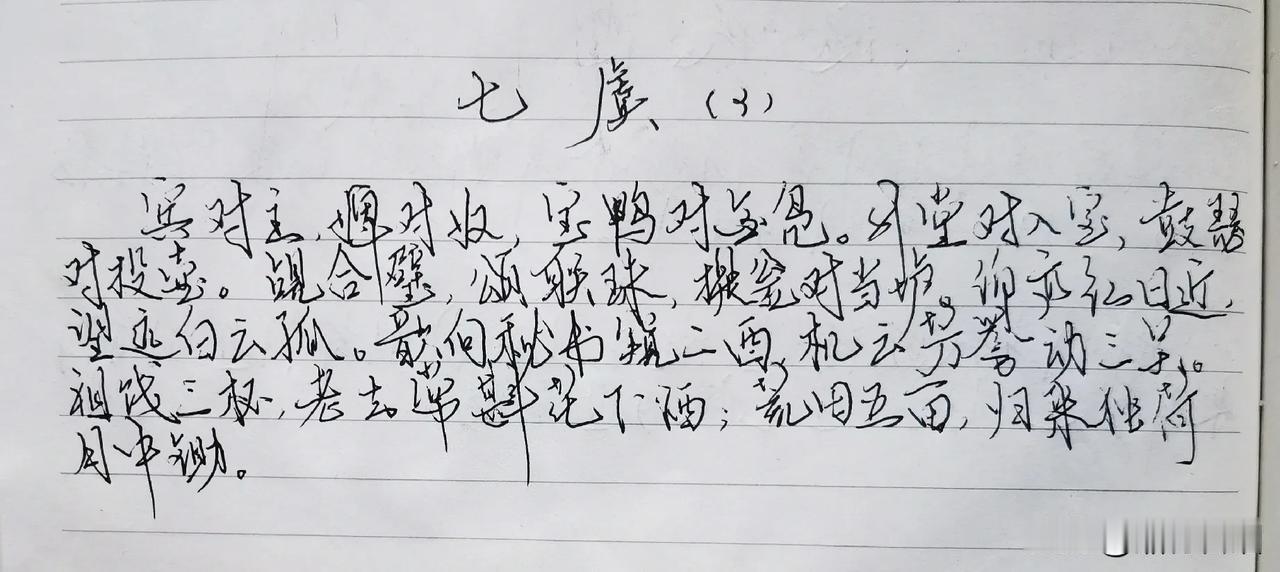 七虞（3）
宾对主，婢对奴，宝鸭对金凫。升堂对入室，鼓瑟
对投壶。觇合璧，颂联珠，提瓮对当垆。仰高红日近，
望远白云孤。歆向秘书窥二酉，机云芳誉动三吴。
祖饯三杯，老去常斟花下酒；荒田五亩，归来独荷
月中锄。